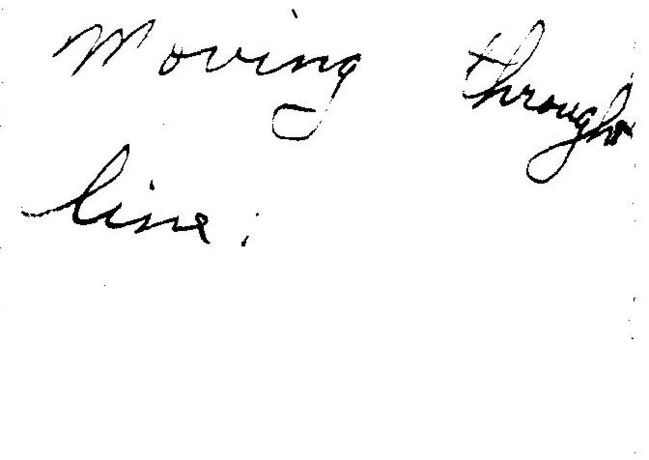 Moving through
line.